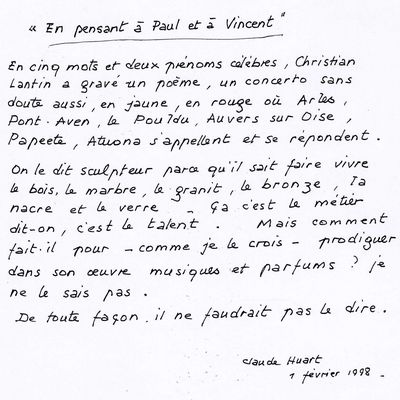 « En pensant à Paul et à Vincent "
En cinq mots et deux prénoms célèbres, Christian
Lantin a gravé un poème, un concerto sans
doute aussi, en jaune, en rouge où Arles,
Pont-Aven, le Pouldu, Auvers sur Oise,
Papeete, Atuona s'appellent et se répondent.
On le dit sculpteur parce qu'il sait faire vivre
le bois, le marbre, le granit, le bronze, la
nacre et le verre - Ça c'est le métier
dit-on, c'est le talent. Mais comment
fait-il pour - comme je le crois - prodiguer
dans son œuvre musiques et parfums ? je
ne le sais pas.
De toute façon il ne faudrait pas le dire.
Claude Huart
1 février 1998.